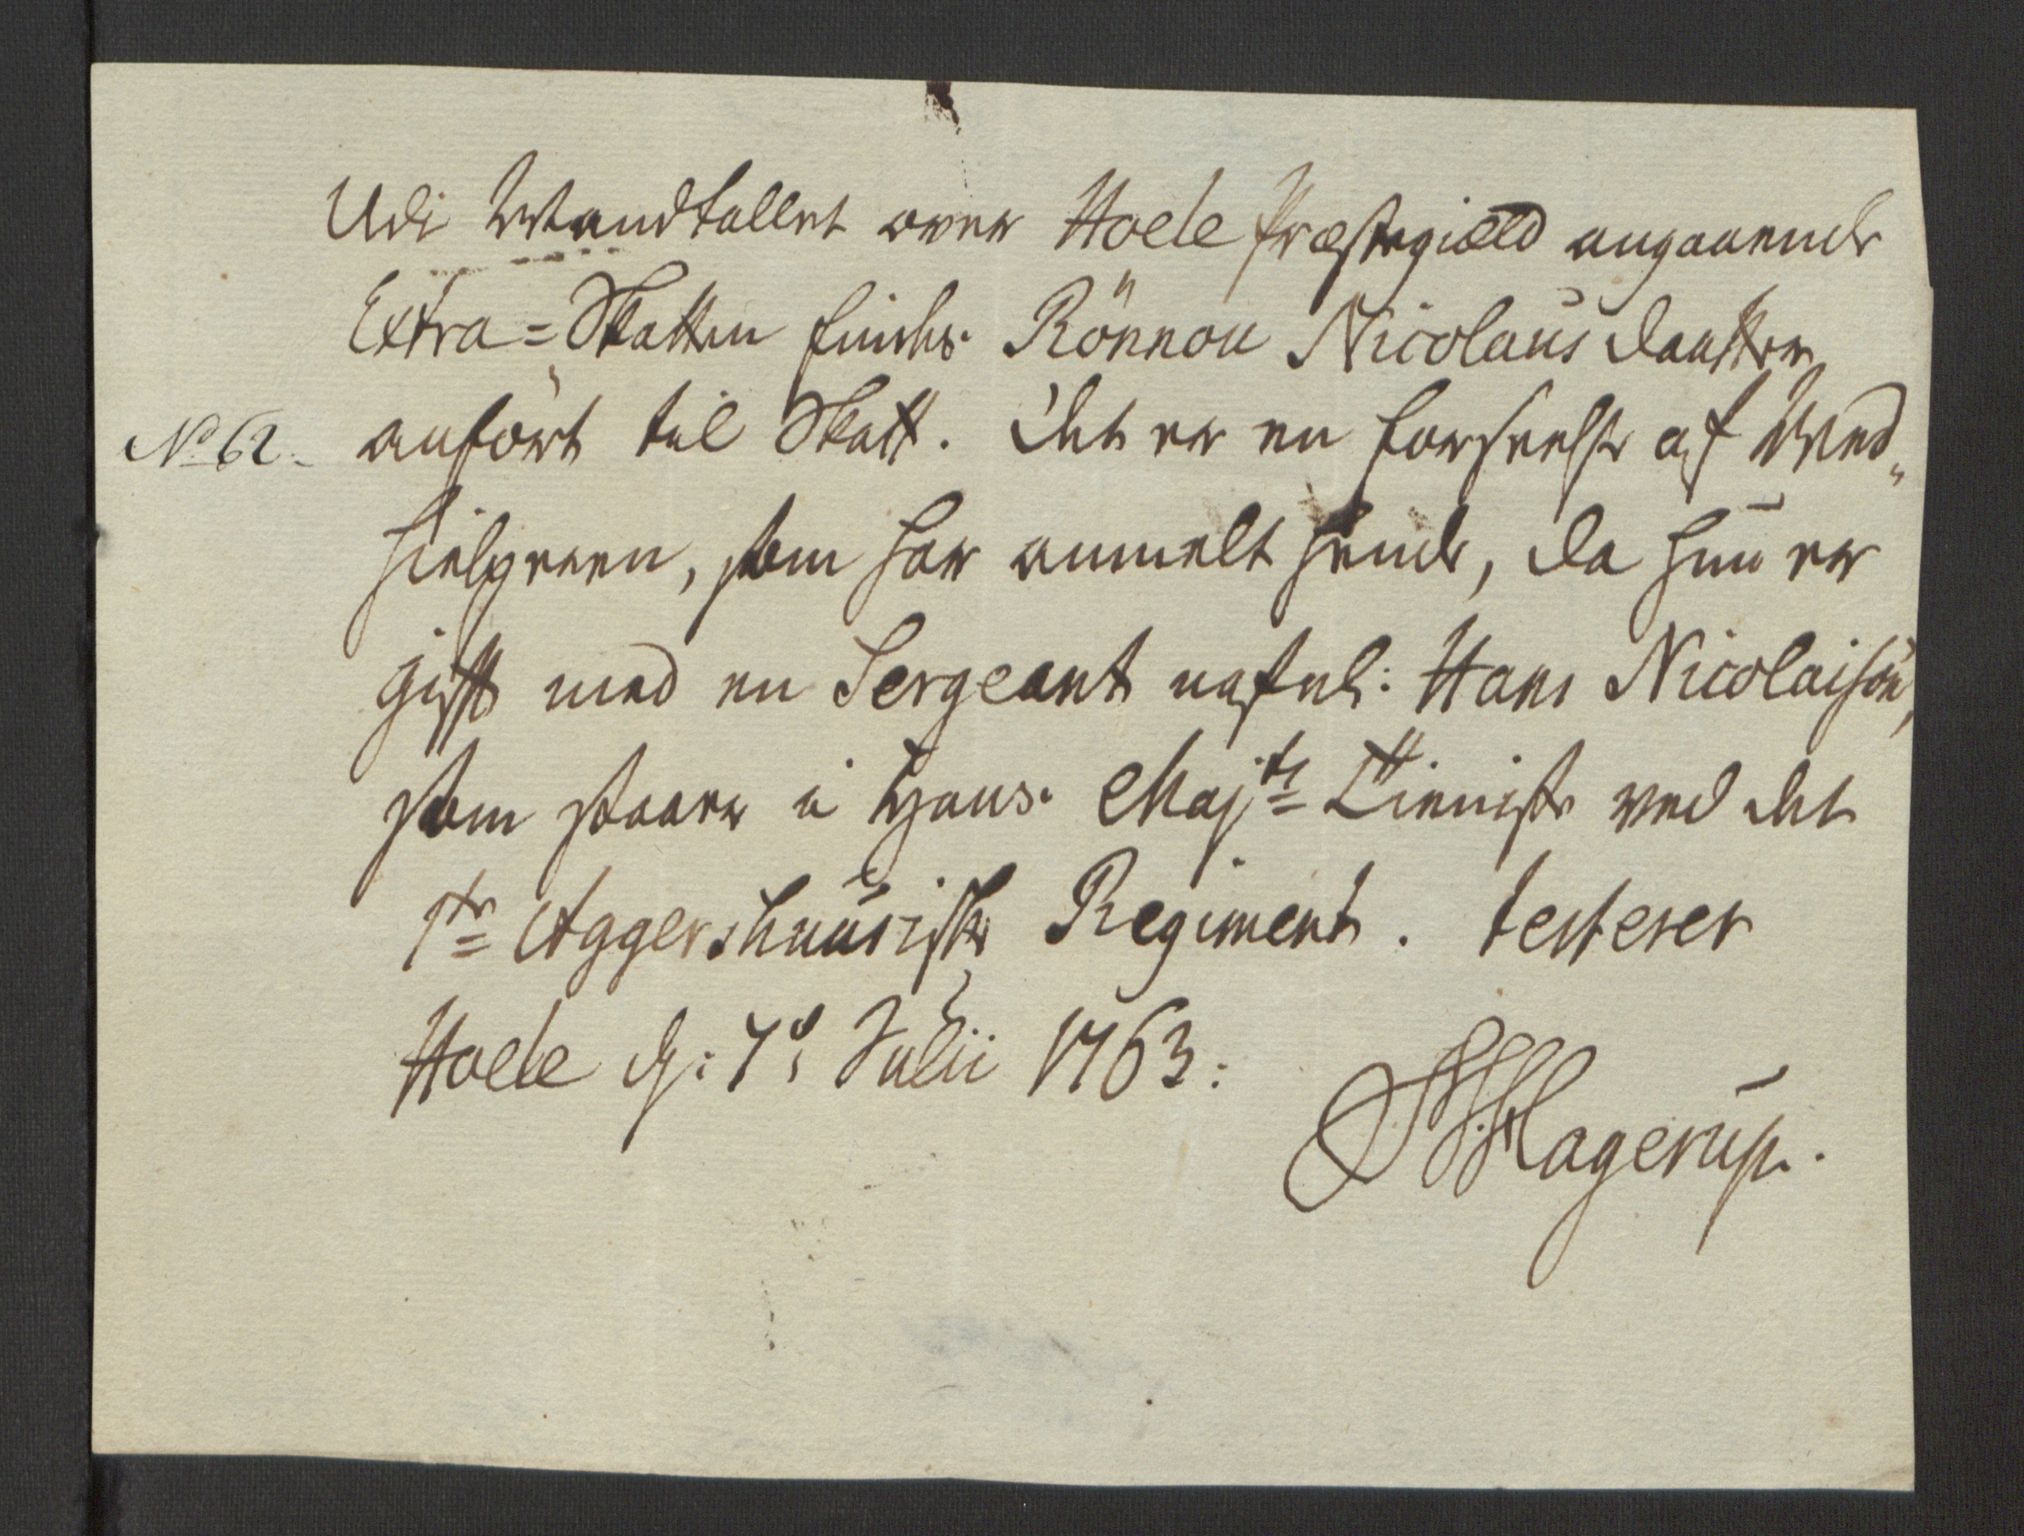 Udi Mandtallet over Hoele Præstegiæld angaaende
Extra=Skatten findes Rönnou Nicolaus datter
No 62. anfört til Skatt. Det er en forseelse af Med„
hielperen, som har anmelt hende, da hun er
gift med en Sergeant nafnl: Hans Nicolaisön,
som staaer i Hans Majts Tieniste ved det
1te Aggershuusiske Regiment. testerer
Hoele d: 7de Julii 1763:
Hagerup.